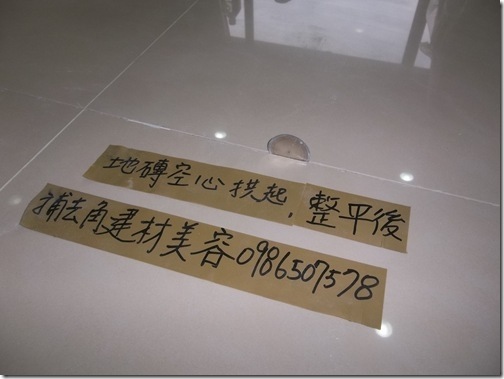 地磚空心拱起,整平後
捕去角建材美容0986507578